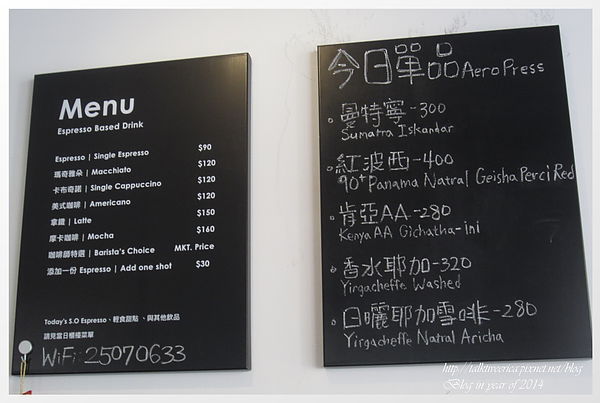 Menu
Espresso Based Drink
Espresso | Single Espresso $90
瑪奇雅朵 | Macchiato $120
卡布奇諾 | Single Cappuccino $120
美式咖啡 | Americano $120
拿鐵 | Latte $150
摩卡咖啡 | Mocha $160
咖啡師特選 | Barista's Choice MKT. Price
添加一份 Espresso | Add one shot $30
Today's S.O Espresso、輕食甜點、與其他飲品
請見當日櫃檯菜單
WiFi: 25070633
今日單品 AeroPress
曼特寧-300
Sumatra Iskandar
紅波西-400
90+ Panama Natral Geisha Perci Red
肯亞AA-280
Kenya AA Gichatha-ini
香水耶加-320
Yirgacheffe Washed
日曬耶加雪啡-280
Yirgacheffe Natral Aricha
http://talktweerica.pixnet.net/blog
Blog in year of 2014